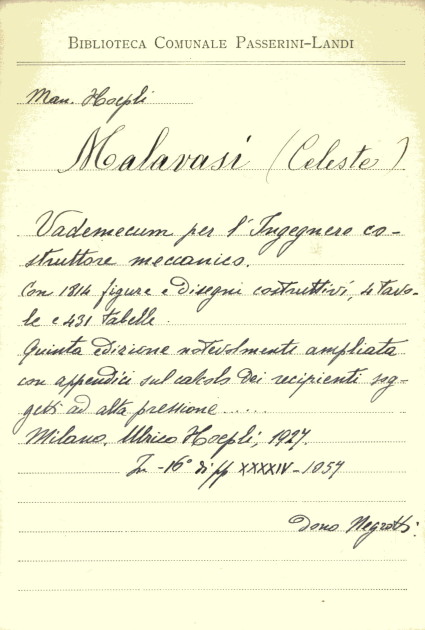 BIBLIOTECA COMUNALE PASSERINI-LANDI
Man. Hoepli
Malavasi (Celeste)
Vademecum per l'Ingegnere co-
struttore meccanico.
Con 1814 figure e disegni costruttivi, 4 tavo-
le e 431 tabelle.
Quinta edizione notevolmente ampliata
con appendici sul calcolo dei recipienti sog-
getti ad alta pressione.....
Milano. Ulrico Hoepli, 1927.
In-16° di pp XXXXIV-1057
Dono Negrotti.